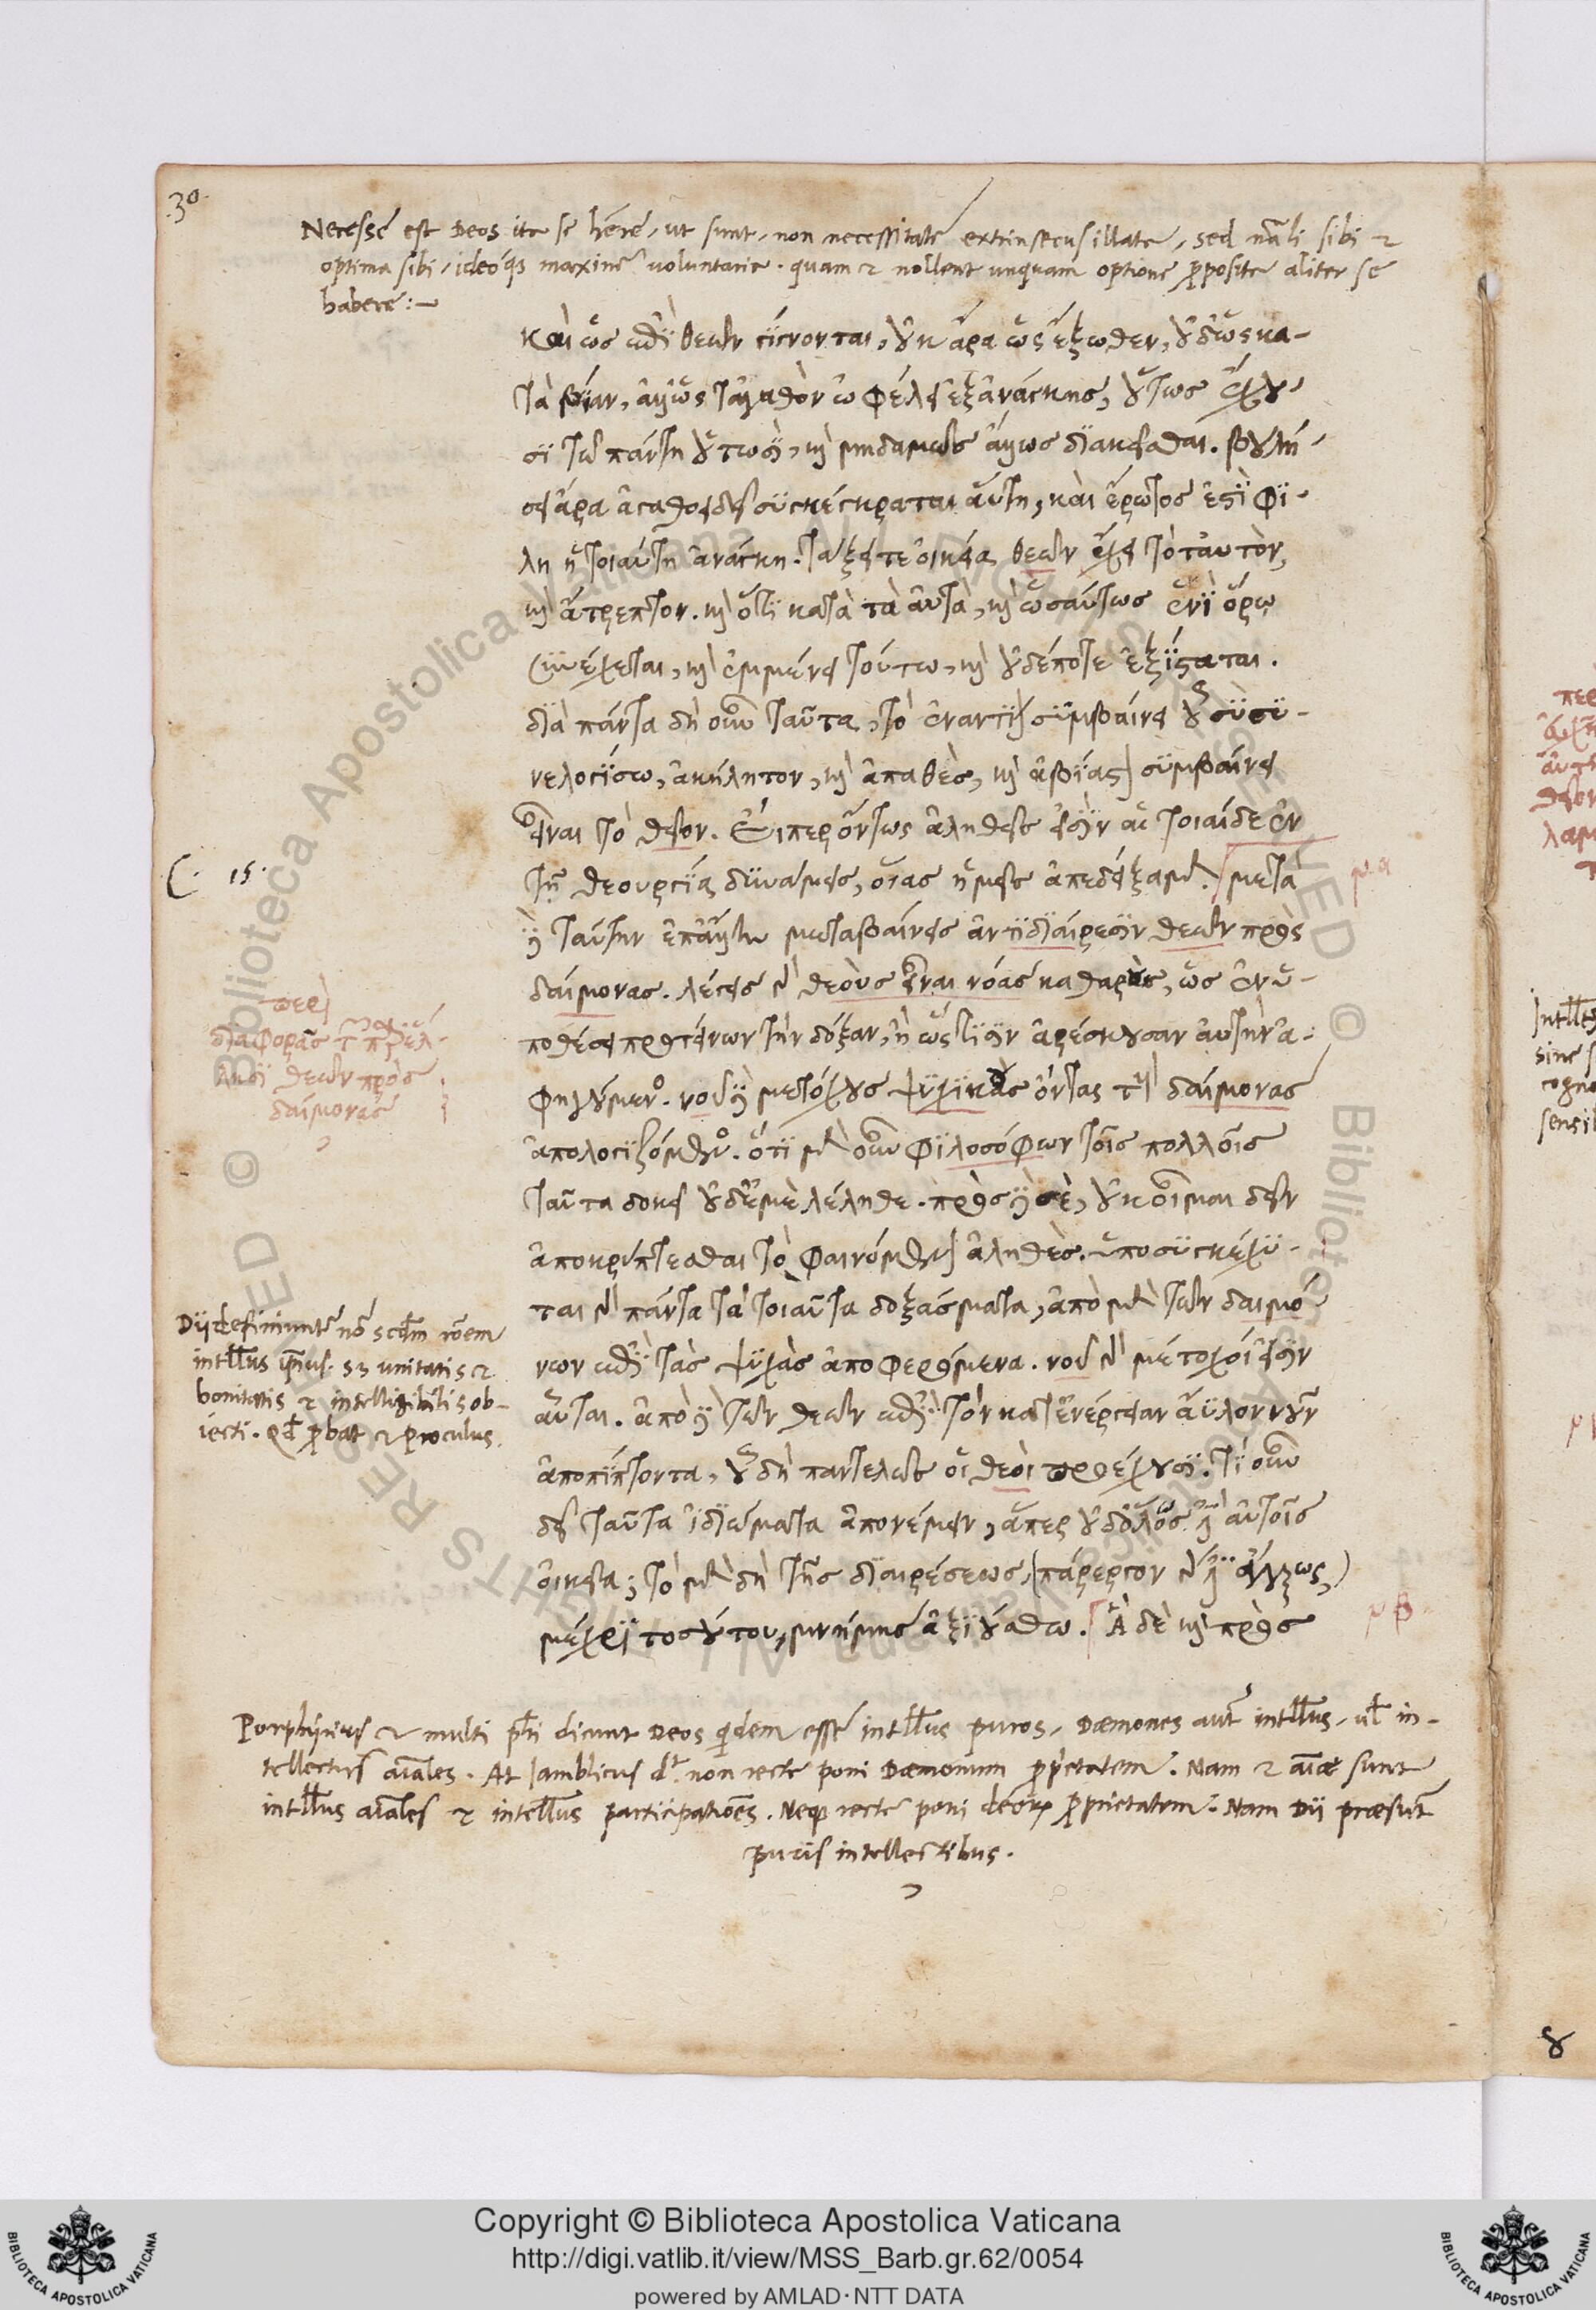 30
Necesse est Deos ita se hére, ut sunt, non necessitate extrinsecus illata, sed nãli sibi et
optima sibi, ideoqz maxime voluntarie. quam et nollent unquam optione proposita aliter se
habere:—
καὶ ὡς περὶ θεῶν γίγνονται, οὐκ ἄρα ὡς ἔξωθεν, οὐδ' ὡς κα-
τὰ βίαν, ἀλλ' ὡς τἀγαθὸν ὠφελεῖ ἐξ ἀνάγκης, οὕτως ἔχου-
σι τῷ πάντη οὕτωσι, καὶ μηδαμῶς ἄλλως διακεῖσθαι. βουλή-
σει ἄρα ἀγαθοειδεῖ συγκέκραται αὕτη, καὶ ἔρωτος ἐστὶ φί-
λη ἡ τοιαύτη ἀνάγκη. τάξει τε οἰκείᾳ θεῶν ἔχει τὸ ταὐτὸν,
καὶ ἄτρεπτον. καὶ ὅτι κατὰ τὰ αὐτὰ, καὶ ὡσαύτως ἑνὶ ὅρῳ
συνέχεται, καὶ ἐμμένει τούτῳ, καὶ οὐδέποτε ἐξίσταται.
διὰ πάντα δὴ οὖν ταῦτα, τὸ ἐναντίον συμβαίνει οὗ σὺ συ-
νελογίσω, ἀκήλητον, καὶ ἀπαθὲς, καὶ ἀβίαστον συμβαίνει
εἶναι τὸ θεῖον. εἴπερ ὄντως ἀληθεῖς εἰσὶν αἱ τοιαίδε ἐν
τῇ θεουργίᾳ δυνάμεις, οἵας ἡμεῖς ἀπεδείξαμεν. μετὰ
δὲ ταύτην ἐπ' ἄλλην μεταβαίνεις ἀντιδιαίρεσιν θεῶν πρὸς
δαίμονας. λέγεις γὰρ θεοὺς εἶναι νόας καθαροὺς, ὡς ἐν ὑ-
ποθέσει προτείνων τὴν δόξαν, ἢ ὥς τισιν ἀρέσκουσαν αὐτὴν ἀ-
φηγούμενος. νοῦ δὲ μετόχους ψυχικοὺς ὄντας τοὺς δαίμονας
ἀπολογιζόμενος. ὅτι μὲν οὖν φιλοσόφων τοῖς πολλοῖς
ταῦτα δοκεῖ οὐδ' ἐμὲ λέληθε. πρὸς δὲ σὲ, οὐκ οἶμαι δεῖν
ἀποκρύπτεσθαι τὸ φαινόμενον ἀληθὲς. ὑποσυγκέχυ-
ται γὰρ πάντα τὰ τοιαῦτα δοξάσματα, ἀπὸ μὲν τῶν δαιμό
νων περὶ τὰς ψυχὰς ἀποφερόμενα. νοῦ γὰρ μέτοχοί εἰσιν
αὗται. ἀπὸ δὲ τῶν θεῶν περὶ τὸν κατ' ἐνέργειαν ἄϋλον νοῦν
ἀποπίπτοντα, οὗ δὴ παντελῶς οἱ θεοὶ προέχουσι. τί οὖν
δεῖ ταῦτα ἰδιώματα ἀπονέμειν, ἅπερ οὐδ' ὅλως ἐστὶ αὐτοῖς
οἰκεῖα; τὸ μὲν δὴ τῆς διαιρέσεως, (πάρεργον γάρ ἐστι ἄλλως,)
μέχρι τοσούτου, μνήμης ἀξιούσθω. Ἃ δὲ καὶ πρὸς
C. 15.
μα
περὶ
διαφορᾶς
θεῶν πρὸς
δαίμονας
Dii definiuntr nõ scdm rõem
intllus. sz unitatis et
bonitatis et intelligibilis ob-
iecti. Qd probat et Proculus.
μβ
Porphirius et multi phi dicunt Deos qidem esse intllus puros, Dæmones aut intllus, ul in-
tellectus aiales. At Jamblicus dt. non recte poni Dæmonum proprietatem. Nam et aiæ sunt
intllus aiales et intellus participatiões. Neqz recte poni deorz proprietatem. Nam Dii præsunt
puris intellectibus.
Copyright © Biblioteca Apostolica Vaticana
http://digi.vatlib.it/view/MSS_Barb.gr.62/0054
powered by AMLAD·NTT DATA
BIBLIOTECA APOSTOLICA VATICANA
BIBLIOTECA APOSTOLICA VATICANA